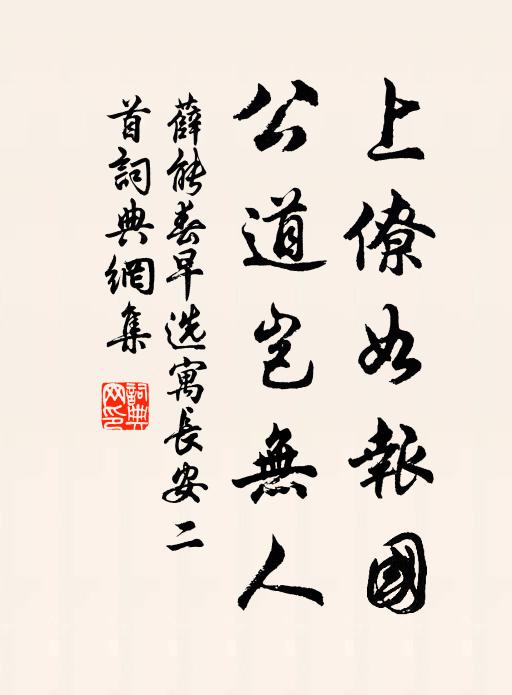 上僚如報國
公道豈無人
薛能春早选寓長安二
首詞典網集
詞典網印